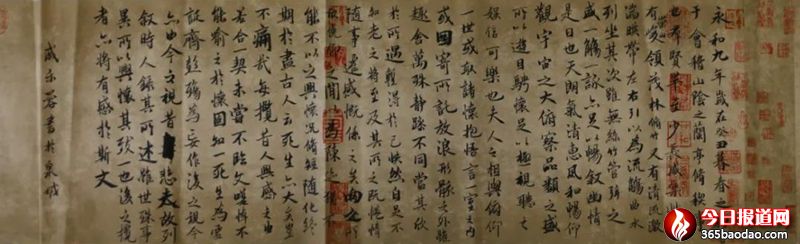 永和九年歲在癸丑暮春之
于會稽山陰之蘭亭脩稧
也羣賢畢至少長咸集此
有領茂林脩竹又有清流激
湍暎帶左右引以為流觴曲水
列坐其次雖無絲竹管弦之
盛一觴一詠亦足以暢敘幽情
是日也天朗氣清惠風和暢仰
觀宇宙之大俯察品類之盛
所以遊目騁懷足以極視聽之
娛信可樂也夫人之相與俯仰
一世或取諸懷抱悟言一室之內
或因寄所託放浪形骸之外雖
趣舍萬殊靜躁不同當其欣
於所遇暫得於己怏然自足不
知老之將至及其所之既惓情
隨事遷感慨係之矣向之所
俛仰之間以為陳迹
能不以之興懷況脩短隨化終
期於盡古人云死生亦大矣豈
不痛哉每攬昔人興感之由
若合一契未嘗不臨文嗟悼不
能喻之於懷固知一死生為虛
誕齊彭殤為妄作後之視今
亦由今之視昔悲夫故列
敘時人錄其所述雖世殊事
異所以興懷其致一也後之攬
者亦將有感於斯文
書於泉城
今日报道网
365baodao.com